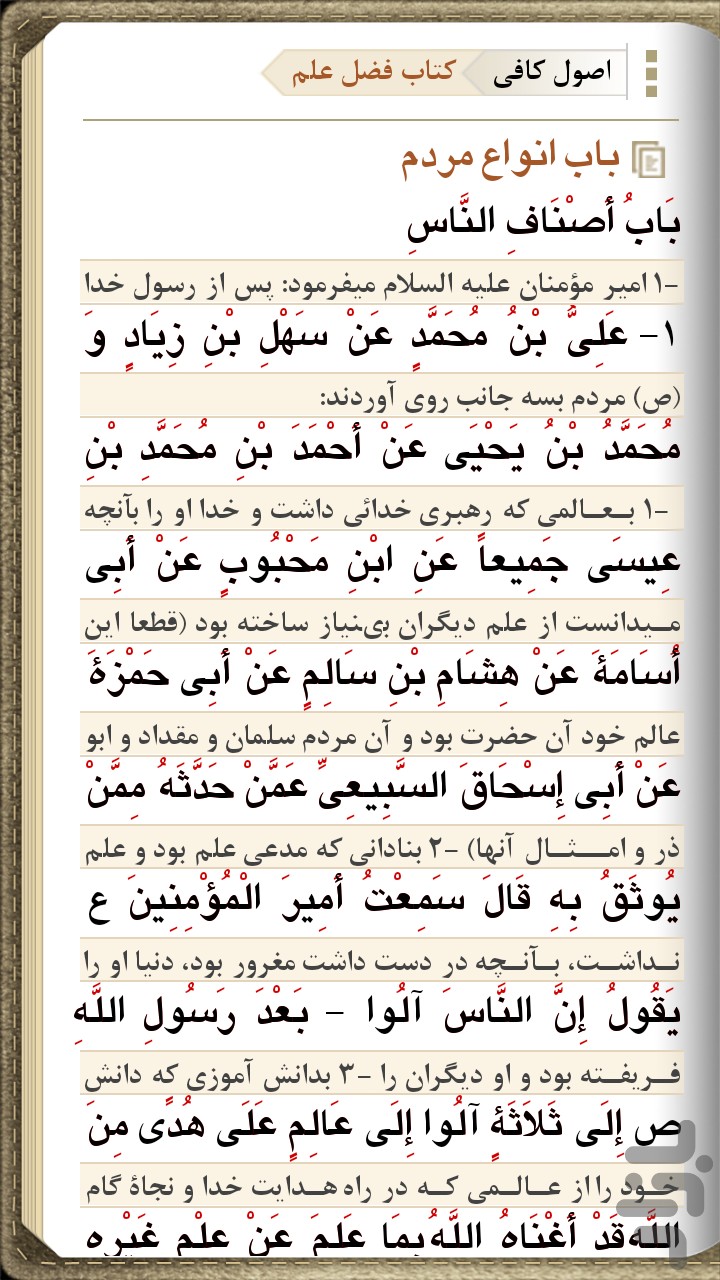 اصول کافی
کتاب فضل علم
باب انواع مردم
بَابُ أَصْنَافِ النَّاسِ
-۱ امیر مؤمنان علیه السلام میفرمود: پس از رسول خدا
۱- عَلِىُّ بْنُ مُحَمَّدٍ عَنْ سَهْلِ بْنِ زِيَادٍ وَ
(ص) مردم بسه جانب روی آوردند:
مُحَمَّدُ بْنُ يَحْيَى عَنْ أَحْمَدَ بْنِ مُحَمَّدِ بْنِ
-۱ بـعــالمی که رهبری خدائی داشت و خدا او را بآنچه
عِيسَى جَمِيعاً عَنِ ابْنِ مَحْبُوبٍ عَنْ أَبِى
مـیدانست از علم دیگران بی‌نیاز ساخته بود (قطعا این
أُسَامَةَ عَنْ هِشَامِ بْنِ سَالِمٍ عَنْ أَبِى حَمْزَةَ
عالم خود آن حضرت بود و آن مردم سلمان و مقداد و ابو
عَنْ أَبِى إِسْحَاقَ السَّبِيعِىِّ عَمَّنْ حَدَّثَهُ مِمَّنْ
ذر و امــثــال آنها) -۲ بنادانی که مدعی علم بود و علم
يُوثَقُ بِهِ قَالَ سَمِعْتُ أَمِيرَ الْمُؤْمِنِينَ ع
نـداشـت، بـآنـچه در دست داشت مغرور بود، دنیا او را
يَقُولُ إِنَّ النَّاسَ آلُوا - بَعْدَ رَسُولِ اللَّهِ
فـریفـته بود و او دیگران را -۳ بدانش آموزی که دانش
ص إِلَى ثَلَاثَةٍ آلُوا إِلَى عَالِمٍ عَلَى هُدًى مِنَ
خـود را از عـالـمی کـه در راه هـدایت خدا و نجاة گام
اللَّهِ قَدْ أَغْنَاهُ اللَّهُ بِمَا عَلِمَ عَنْ عِلْمِ غَيْرِهِ